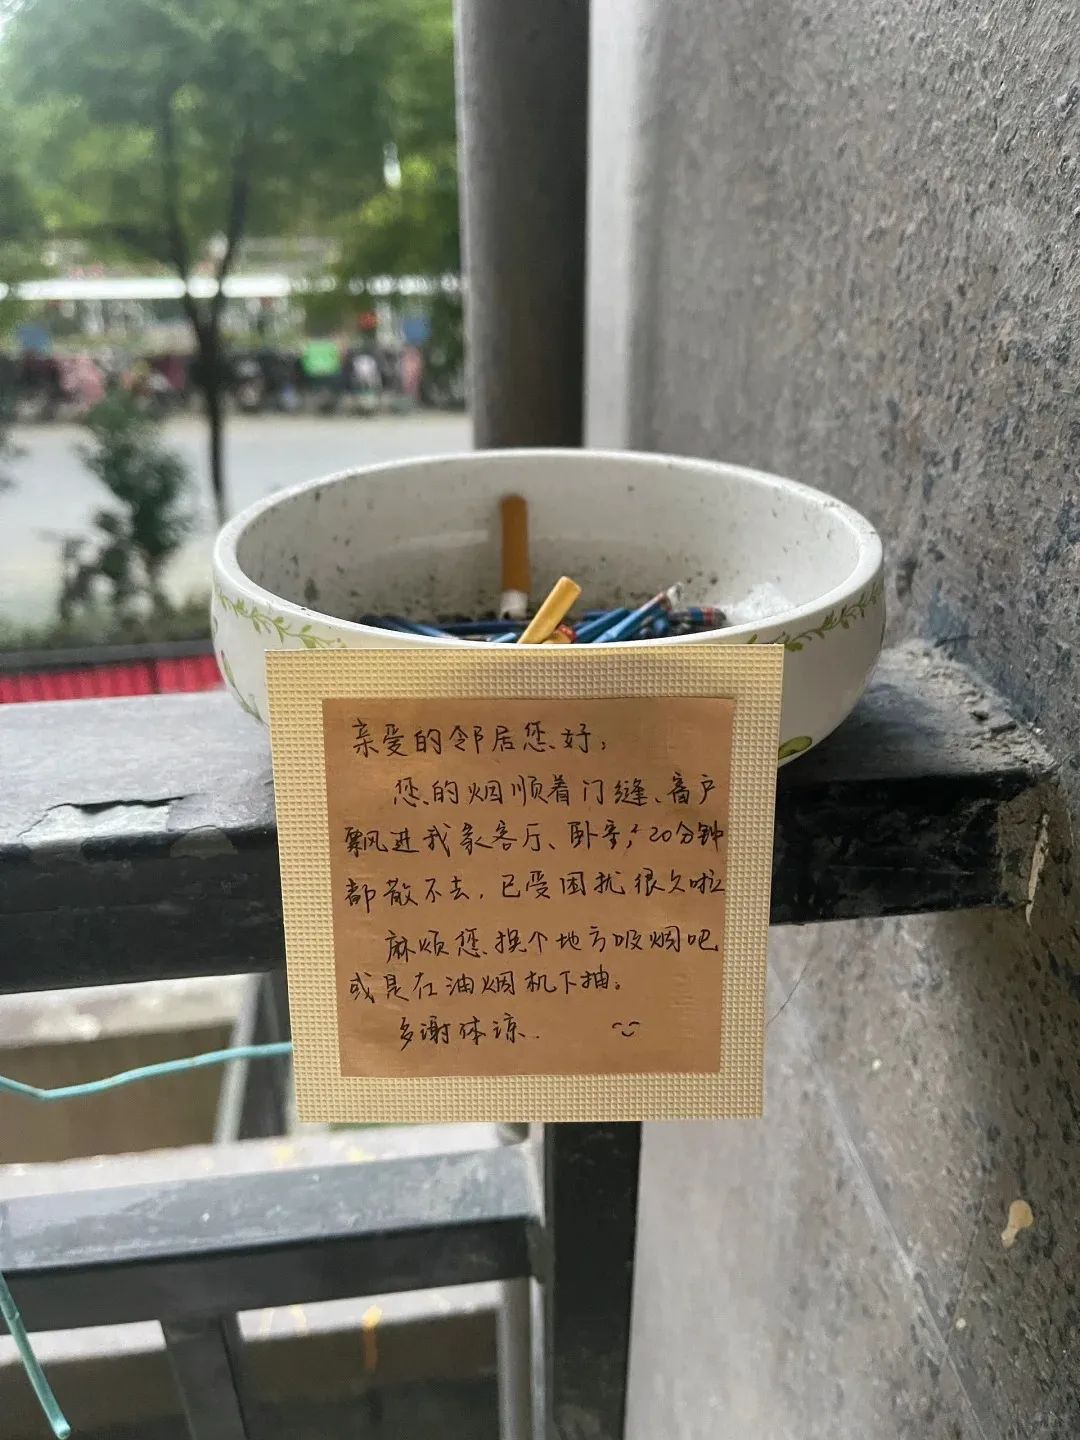 亲爱的邻居您好，
您的烟顺着门缝、窗户
飘进我家客厅、卧室，20分钟
都散不去，已受困扰很久啦
麻烦您换个地方吸烟吧
或是在油烟机下抽。
多谢体谅.